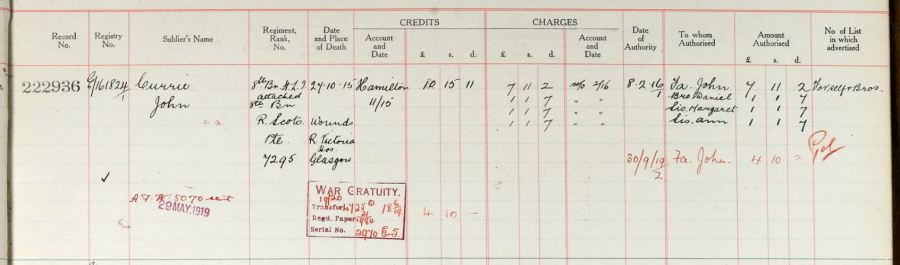 CREDITS CHARGES
Record No. Registry No. Soldier's Name Regiment, Rank, No. Date and Place of Death Account and Date £ s. d. £ s. d. Account and Date Date of Authority To whom Authorised Amount Authorised £ s. d. No of List in which advertised
222936 Currie 8th Bn H.L.I 24-10-15 Hamilton 10 15 11 7 11 2 2/16 8-2-16 Fa. John 7 11 2 For self & Bros.
John attached 11/15 1 1 7 " " 1 Bro Daniel 1 1 7
8th Bn 1 1 7 " " Sis. Margaret 1 1 7
R. Scots. Wounds 1 1 7 " " Sis. Ann 1 1 7
Pte R Victoria Hos.
7295 Glasgow 30/9/19 Fa. John. 4 10 =
2
✓
A.F.W. 5070 sent
29 MAY. 1919
WAR GRATUITY.
19/20
Transfor
Regd. Paper
Serial No.
4 10 -